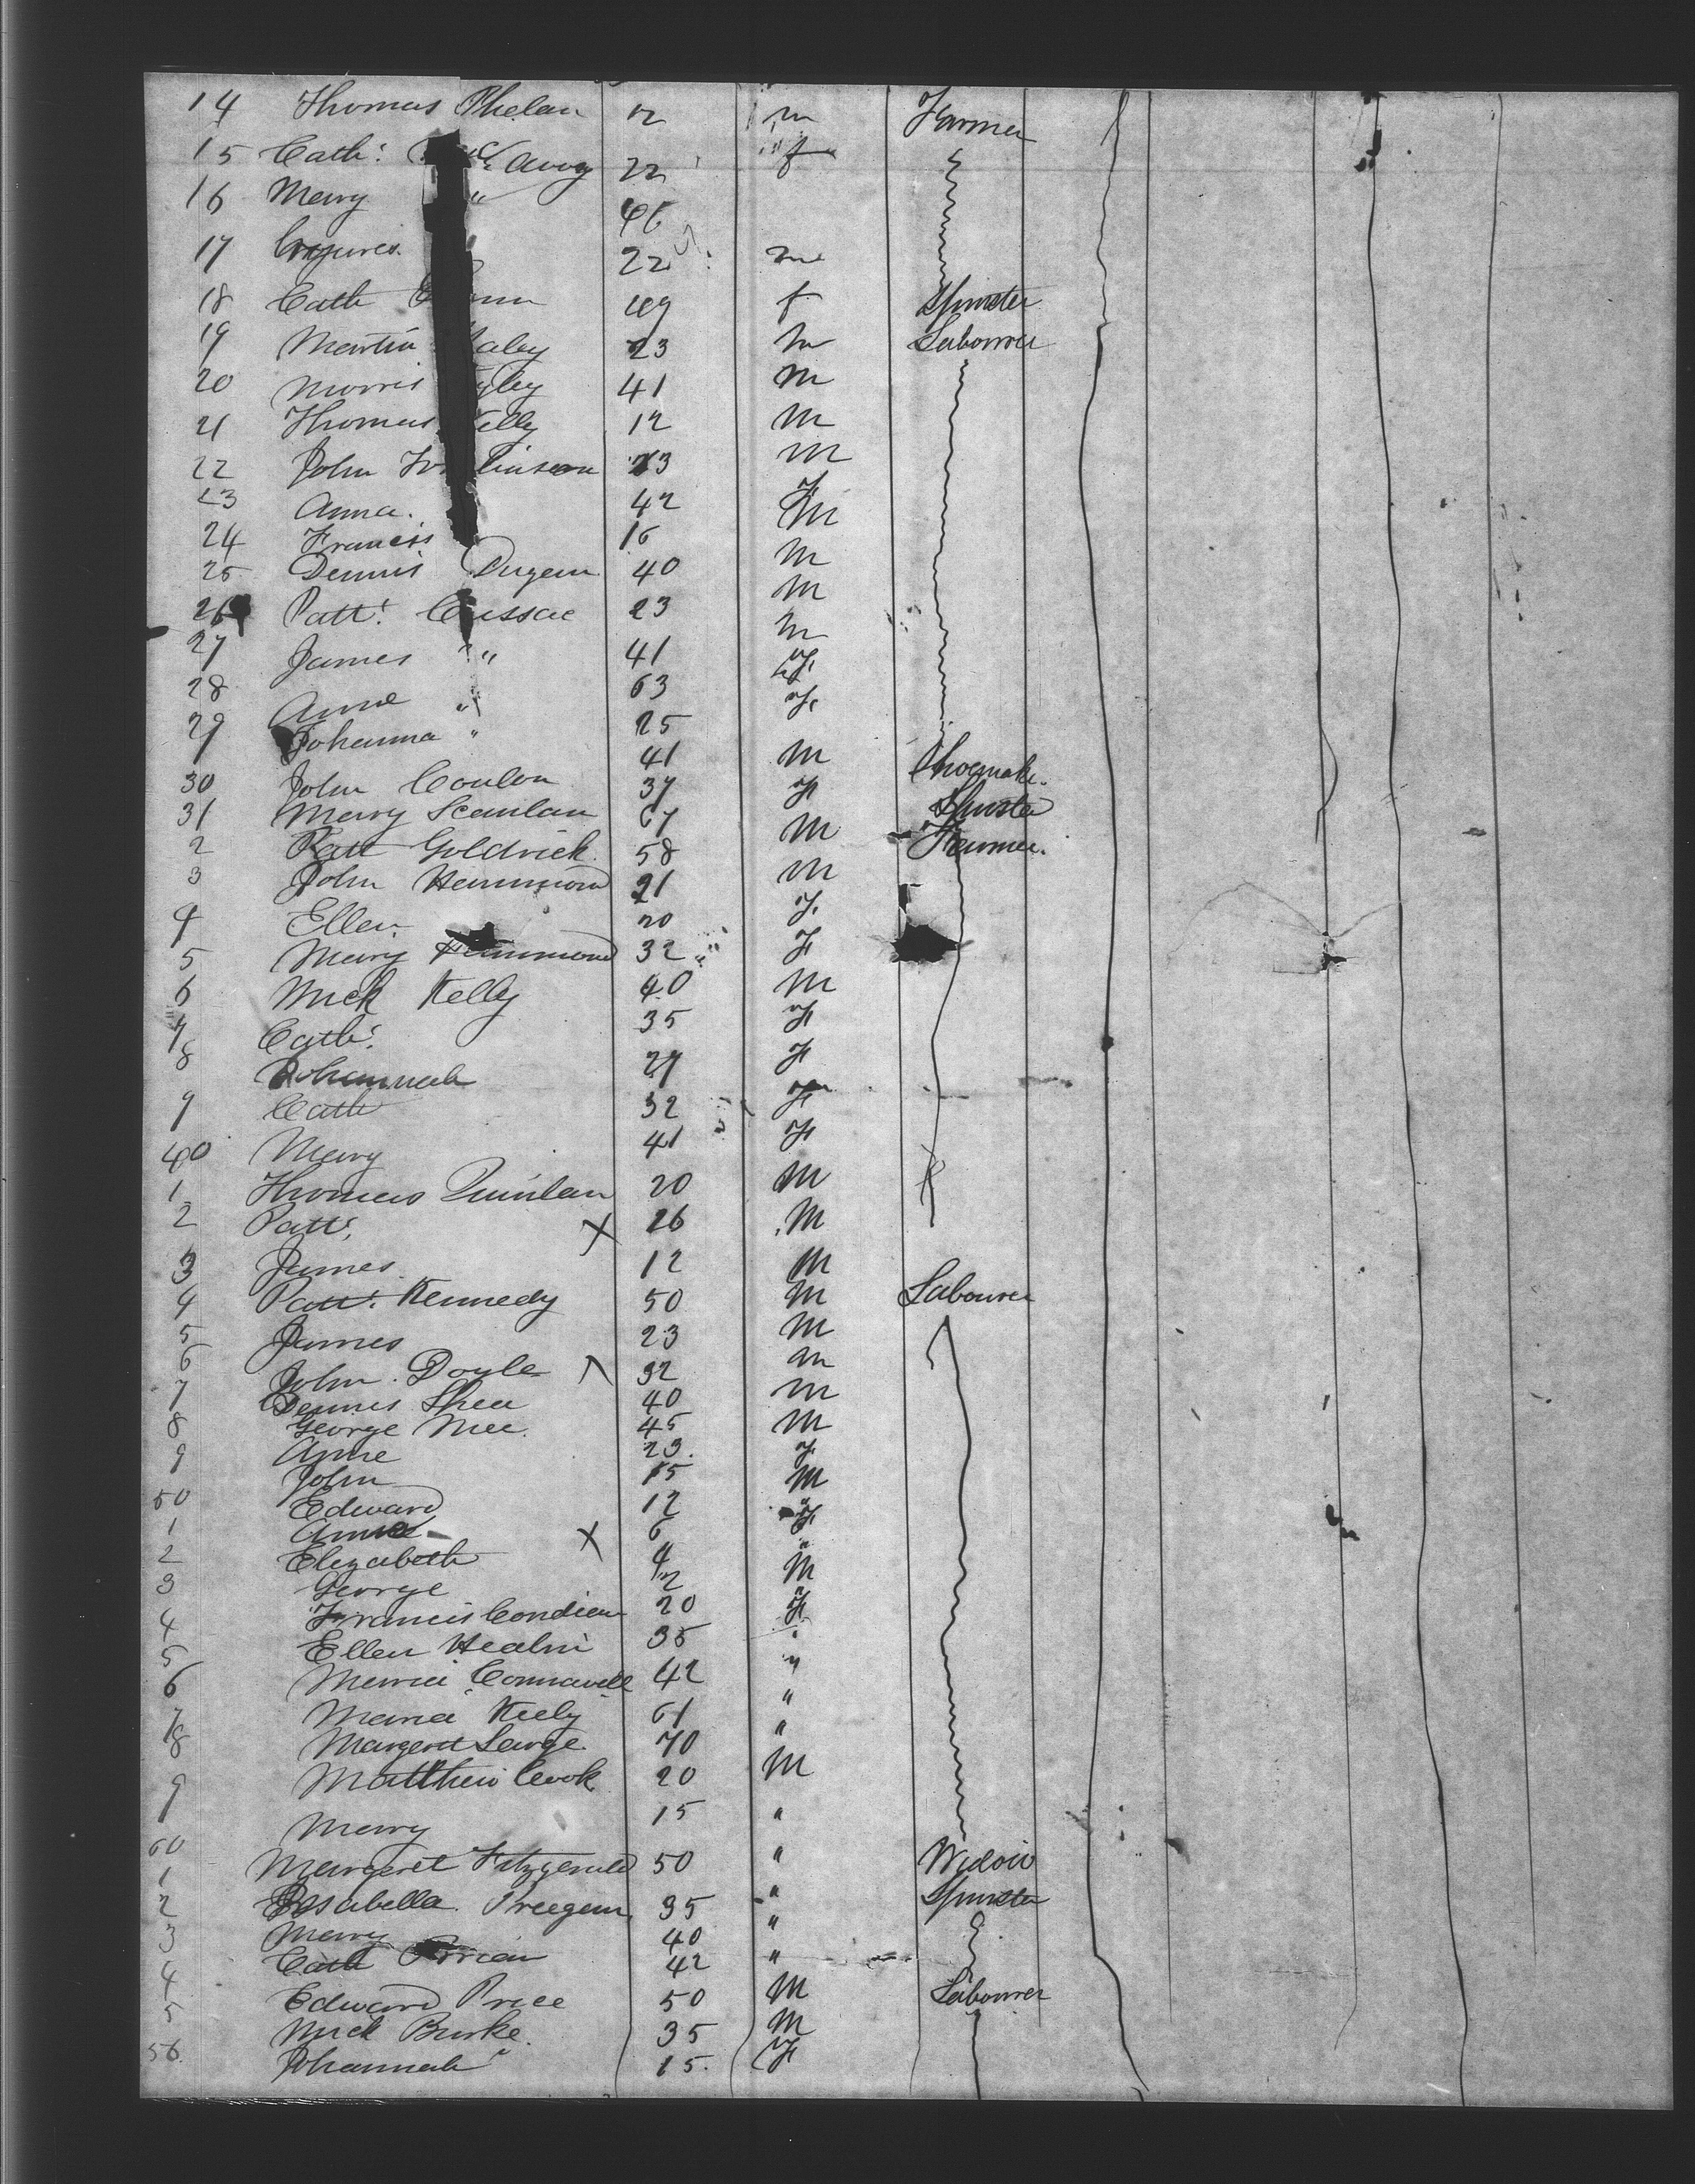 14 Thomas Phelan 12 m Farmer
15 Cath: McAvoy 22 f
16 Mary " 46
17 22 m
18 Cath 49 f Spinster
19 Martin aley 23 m Labourer
20 Morris yley 41 M
21 Thomas Kelly 12 M
22 John Tomlinson 23 M
23 Anna. 42 F
24 Francis 16 M
25 Dennis Dugan 40 M
26 Patt: Cussac 23 M
27 James " 41 M
28 Anne " 63 F.
29 Johanna " 25 F.
30 John Conlon 41 M Shoemaker.
31 Mary Scanlan 37 F Spinster
2 Patt Goldrick 67 M Farmer.
3 John Hammond 58 M
4 Ellen 21 F.
5 Mary Hammond 20 F
6 Mick Kelly 32 M
7 Cath: 40 F
8 Johannah 35 F
9 Cath 27 F
40 Mary 32 F
1 Thomas Quinlan 41 M
2 Patt: X 20 M
3 James 26 M
4 Patt: Kennedy 12 M Labourer
5 James 50 M
6 John Doyle 23 M
7 Dennis Shea 32 M
8 George Mee 40 M
9 Anne 45 F
50 John 23. M
1 Edward 15 "
2 Anne X 12 F
3 Elizabeth 6 "
4 George 4 M
5 Francis Condien 2 F
6 Ellen Healin 20 "
7 Maria Connavell 35 "
8 Maria Kiely 42 "
9 Margaret Large 61 "
60 Matthew Cook 70 M
1 Mary 20 "
2 Margeret Fitzgerald 15 " Widow
3 Issabella Preegan 50 " Spinster
4 Mary 35 "
5 Cath Brien 40 "
Edward Price 42 M Labourer
Mick Burke. 50 M
56 Johannah " 35 F
15.